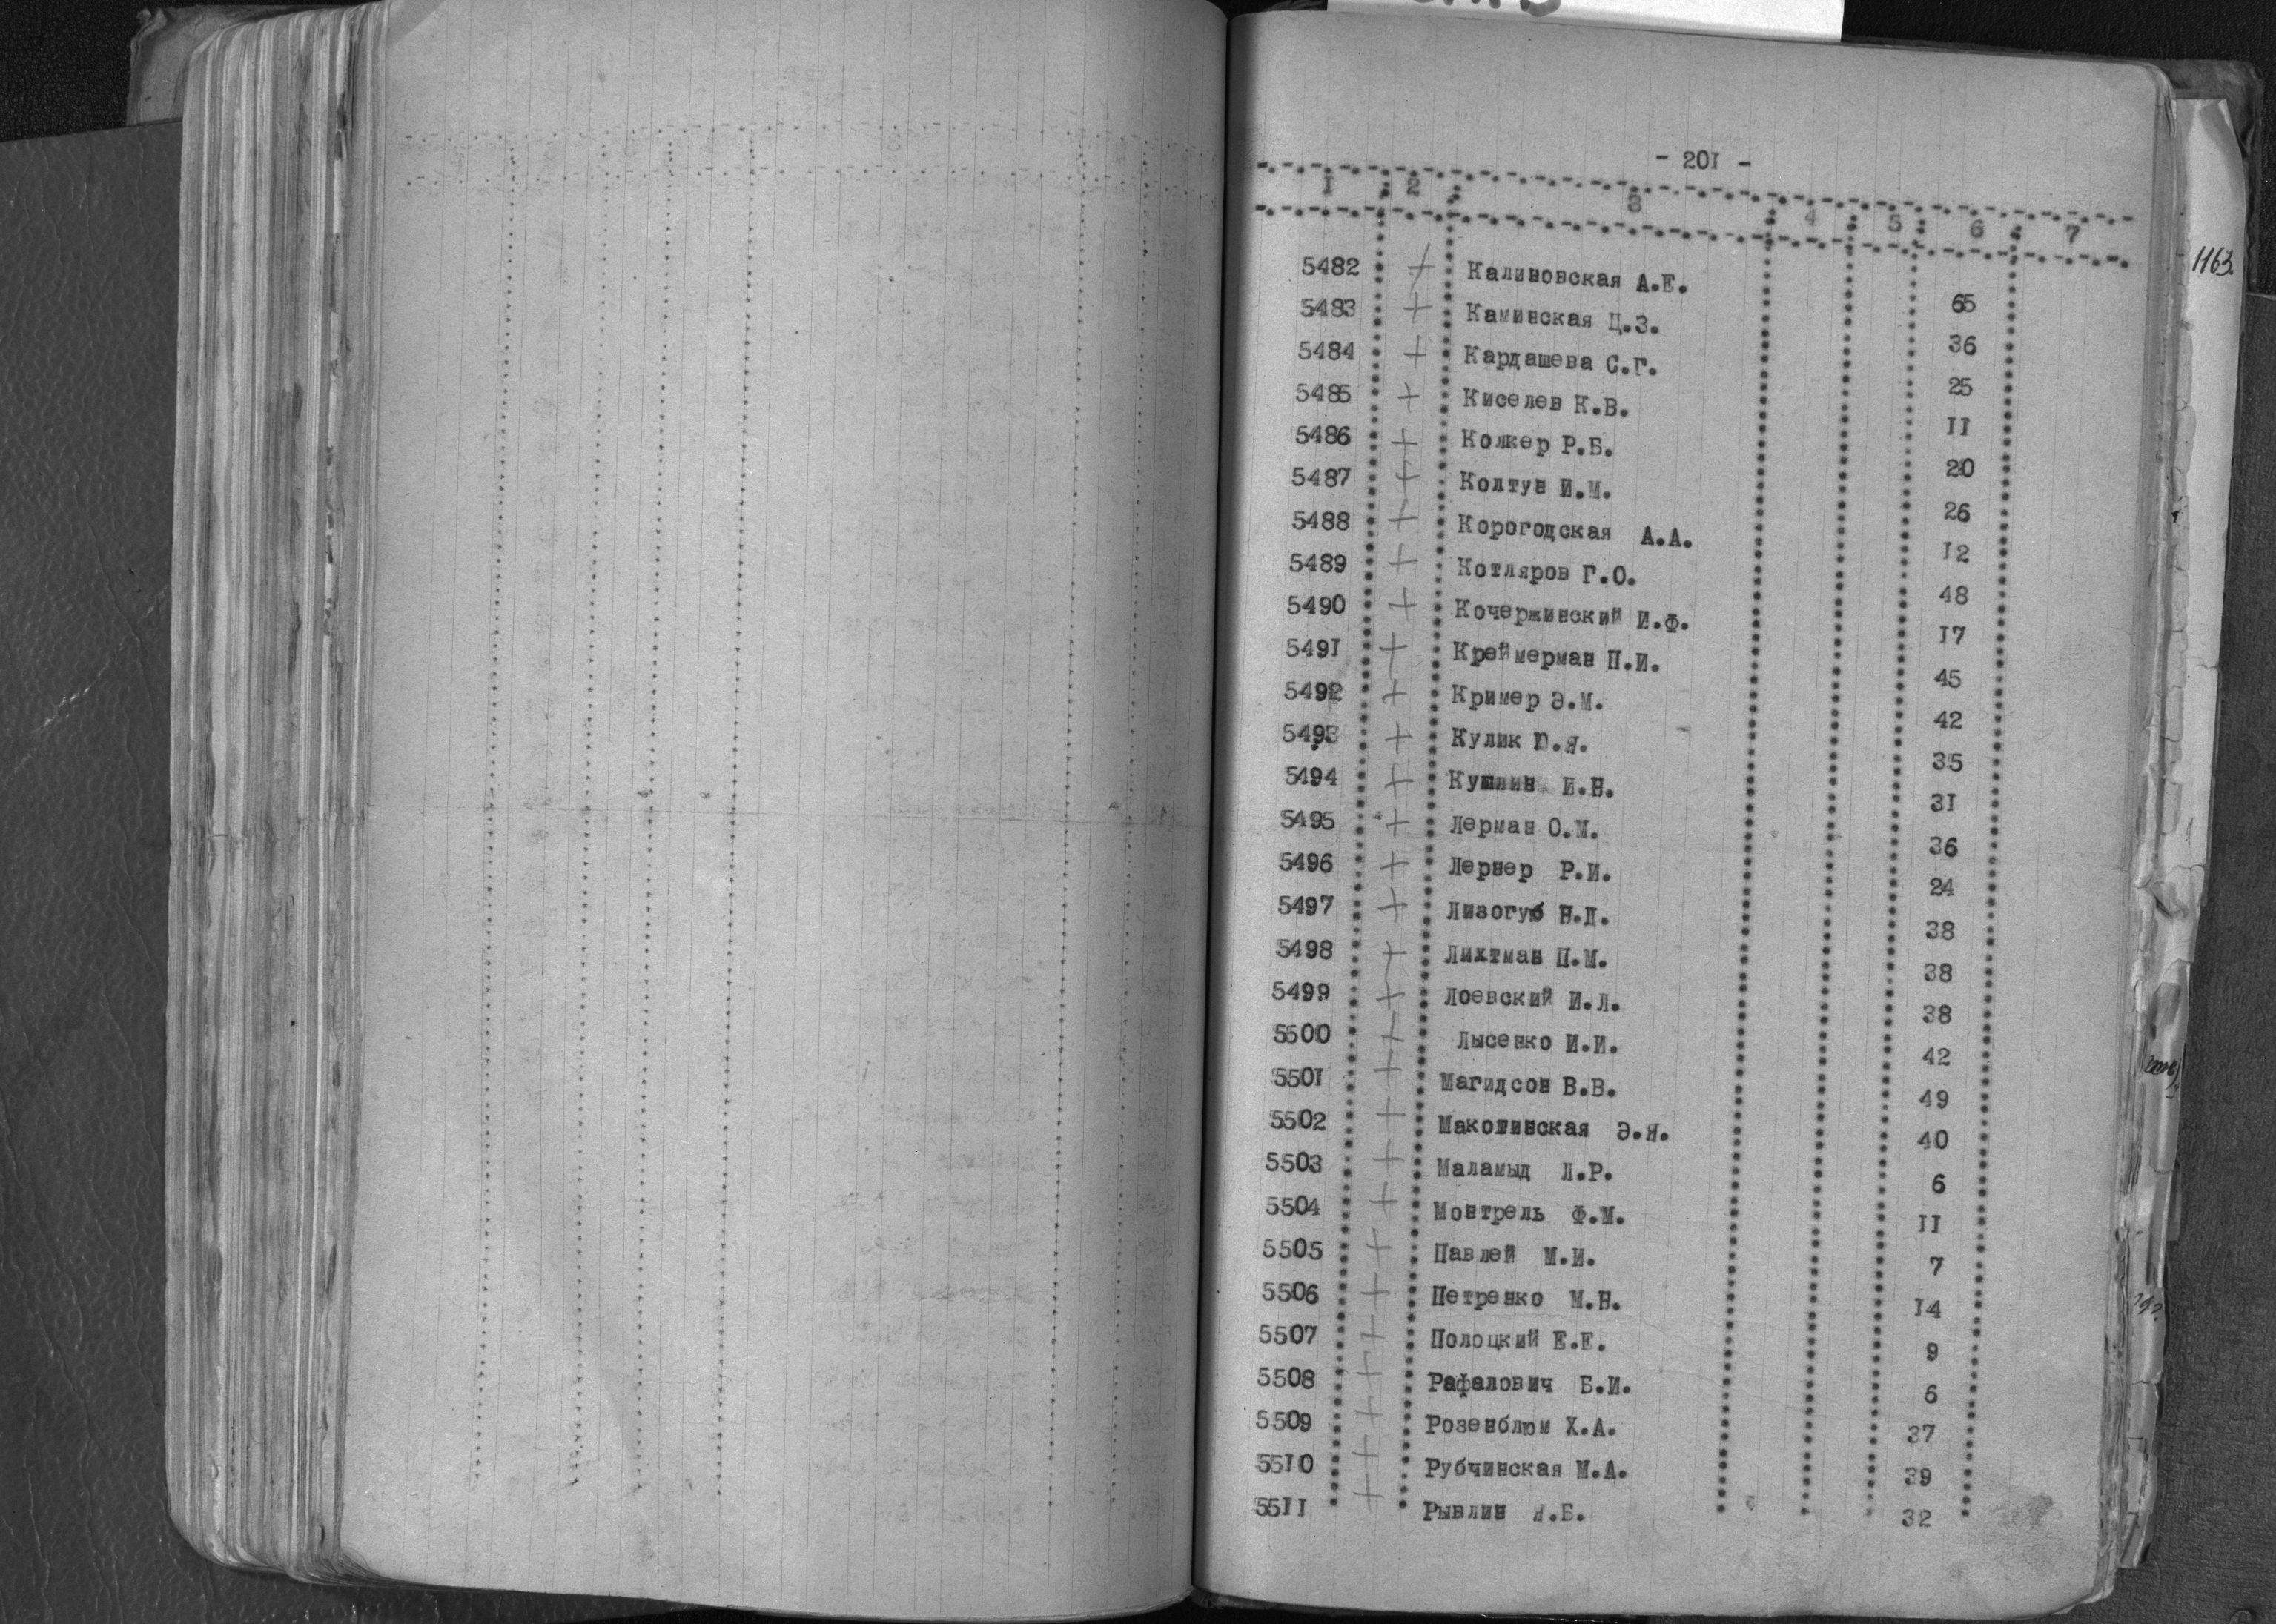 - 20I -
I 2 3 4 5 6 7
1163.
5482 + Калиновская А.Е. 65
5483 + Каминская Ц.З. 36
5484 + Кардашева С.Г. 25
5485 + Киселев К.В. II
5486 + Колкер Р.Б. 20
5487 + Колтун И.М. 26
5488 + Корогодская А.А. I2
5489 + Котляров Г.О. 48
5490 + Кочержинский И.Ф. I7
549I + Креймерман П.И. 45
5492 + Кример Э.М. 42
5493 + Кулик Ю.Я. 35
5494 + Кушлин И.Н. 3I
5495 + Лерман О.М. 36
5496 + Лернер Р.И. 24
5497 + Лизогуб Н.Д. 38
5498 + Лихтман П.М. 38
5499 + Лоевский И.Л. 38
5500 + Лысенко И.И. 42
550I + Магидсон В.В. 49
5502 + Макотинская Э.Я. 40
5503 + Маламыд Л.Р. 6
5504 + Монтрель Ф.М. II
5505 + Павлей М.И. 7
5506 + Петренко М.Н. I4
5507 + Полоцкий Е.Е. 9
5508 + Рафалович Б.И. 6
5509 + Розенблюм Х.А. 37
55I0 + Рубчинская М.А. 39
55II + Рывлин Б. 32